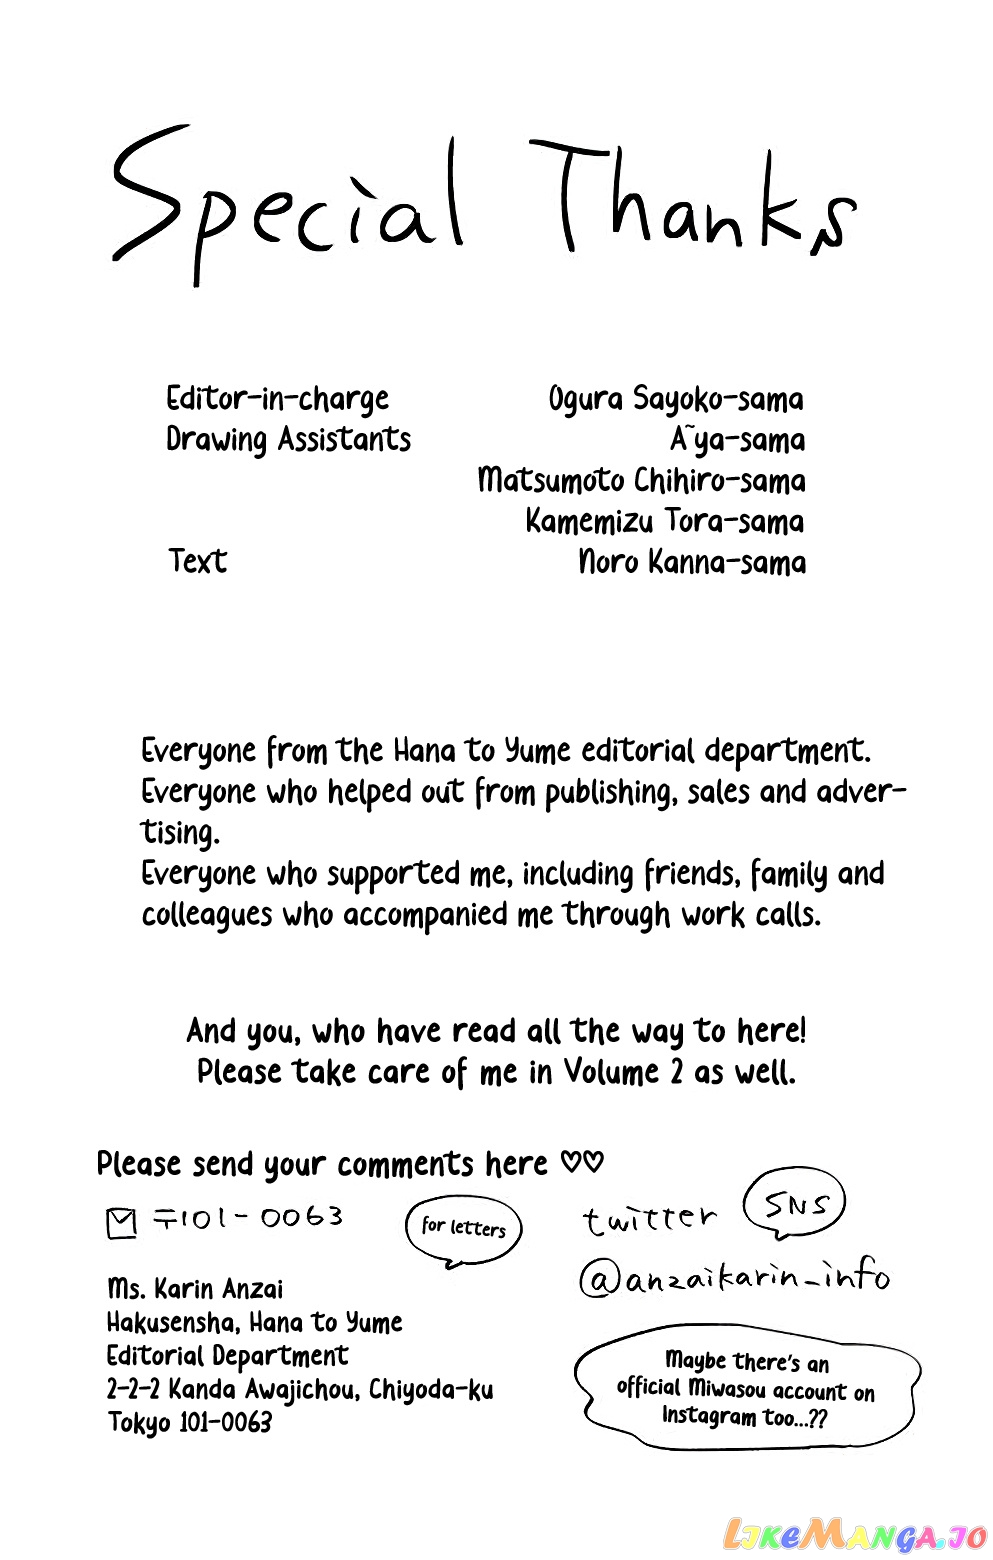 Special Thanks
Editor-in-charge Ogura Sayoko-sama
Drawing Assistants A~ya-sama
Matsumoto Chihiro-sama
Kamemizu Tora-sama
Text Noro Kanna-sama
Everyone from the Hana to Yume editorial department.
Everyone who helped out from publishing, sales and adver-
tising.
Everyone who supported me, including friends, family and
colleagues who accompanied me through work calls.
And you, who have read all the way to here!
Please take care of me in Volume 2 as well.
Please send your comments here ♡♡
〒101-0063
for letters
Ms. Karin Anzai
Hakusensha, Hana to Yume
Editorial Department
2-2-2 Kanda Awajichou, Chiyoda-ku
Tokyo 101-0063
twitter
SNS
@anzaikarin_info
Maybe there's an
official Miwasou account on
Instagram too...??
LIKEMANGA.IO